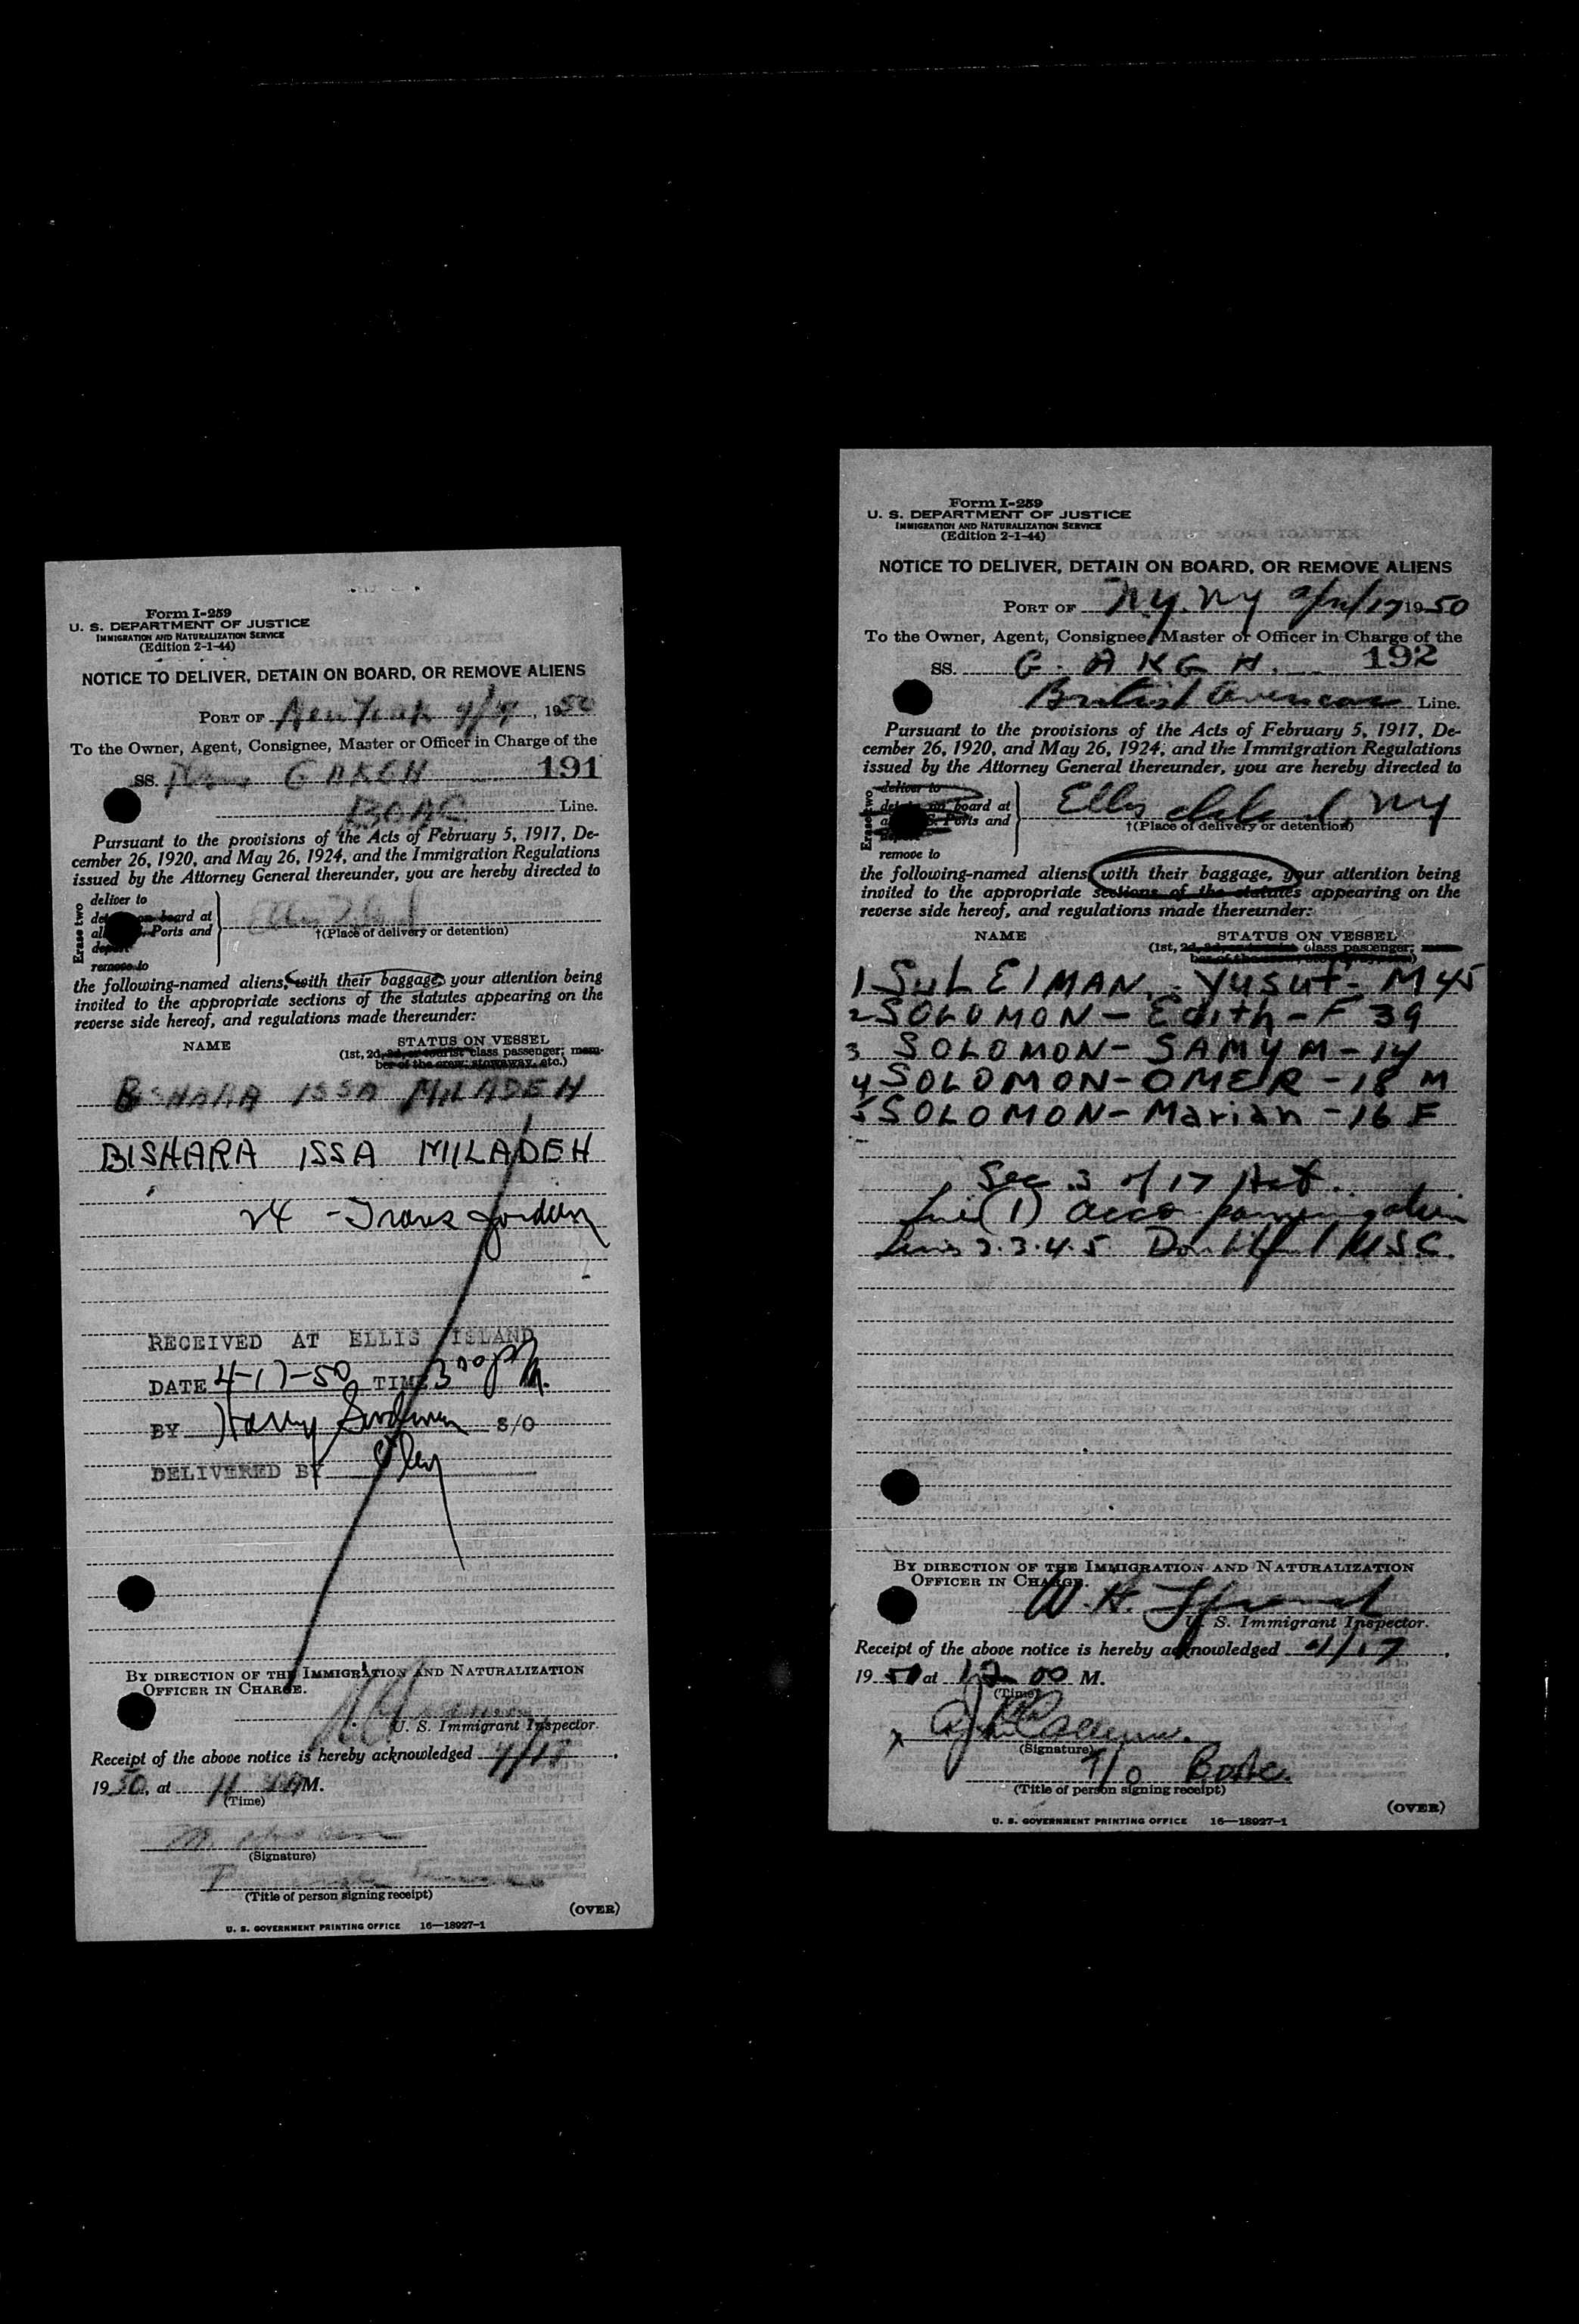 Form I-259
U. S. DEPARTMENT OF JUSTICE
IMMIGRATION AND NATURALIZATION SERVICE
(Edition 2-1-44)
NOTICE TO DELIVER, DETAIN ON BOARD, OR REMOVE ALIENS
PORT OF New York 4/17, 1950
To the Owner, Agent, Consignee, Master or Officer in Charge of the
SS. G AKGH 191
BOAC Line.
Pursuant to the provisions of the Acts of February 5, 1917, De-
cember 26, 1920, and May 26, 1924, and the Immigration Regulations
issued by the Attorney General thereunder, you are hereby directed to
Erase two
deliver to
board at
Ports and
remove to
Ellis Island
†(Place of delivery or detention)
the following-named aliens, with their baggage, your attention being
invited to the appropriate sections of the statutes appearing on the
reverse side hereof, and regulations made thereunder:
NAME STATUS ON VESSEL
(1st, 2d, 3d, or tourist class passenger; mem-
ber of the crew; stowaway, etc.)
BISHARA ISSA MILADEH
BISHARA ISSA MILADEH
24 - Trans Jordan
RECEIVED AT ELLIS ISLAND
DATE 4-17-50 TIME 3 00 PM.
BY Harry S/O
DELIVERED BY
BY DIRECTION OF THE IMMIGRATION AND NATURALIZATION
OFFICER IN CHARGE.
U. S. Immigrant Inspector.
Receipt of the above notice is hereby acknowledged 4/17,
1950, at 11 M.
(Time)
(Signature)
(Title of person signing receipt)
(OVER)
U. S. GOVERNMENT PRINTING OFFICE 16—18927-1
Form I-259
U. S. DEPARTMENT OF JUSTICE
IMMIGRATION AND NATURALIZATION SERVICE
(Edition 2-1-44)
NOTICE TO DELIVER, DETAIN ON BOARD, OR REMOVE ALIENS
PORT OF N.Y. N.Y April 17 1950
To the Owner, Agent, Consignee, Master or Officer in Charge of the
SS. G. AKGH. 192
British Overseas Line.
Pursuant to the provisions of the Acts of February 5, 1917, De-
cember 26, 1920, and May 26, 1924, and the Immigration Regulations
issued by the Attorney General thereunder, you are hereby directed to
Erase two
deliver to
board at
Ports and
remove to
Ellis Island, NY
†(Place of delivery or detention)
the following-named aliens, with their baggage, your attention being
invited to the appropriate sections of the statutes appearing on the
reverse side hereof, and regulations made thereunder:
NAME STATUS ON VESSEL
(1st, 2d, 3d, or tourist class passenger; mem-
ber of the crew, stowaway, etc.)
1 SuLEIMAN. - Yusuf - M 45
2 SOLOMON - Edith - F 39
3 SOLOMON - SAMY M - 14
4 SOLOMON - OMER - 18 M
5 SOLOMON - Marian - 16 F
Sec. 3 of 17 Act.
Line (1)
Lines 2.3.4.5. Doubtful U.S.C.
BY DIRECTION OF THE IMMIGRATION AND NATURALIZATION
OFFICER IN CHARGE.
W. H.
U. S. Immigrant Inspector.
Receipt of the above notice is hereby acknowledged 4/17,
1950 at 12 00 M.
(Time)
x
(Signature)
T/O BOAC.
(Title of person signing receipt)
(OVER)
U. S. GOVERNMENT PRINTING OFFICE 16—18927-1